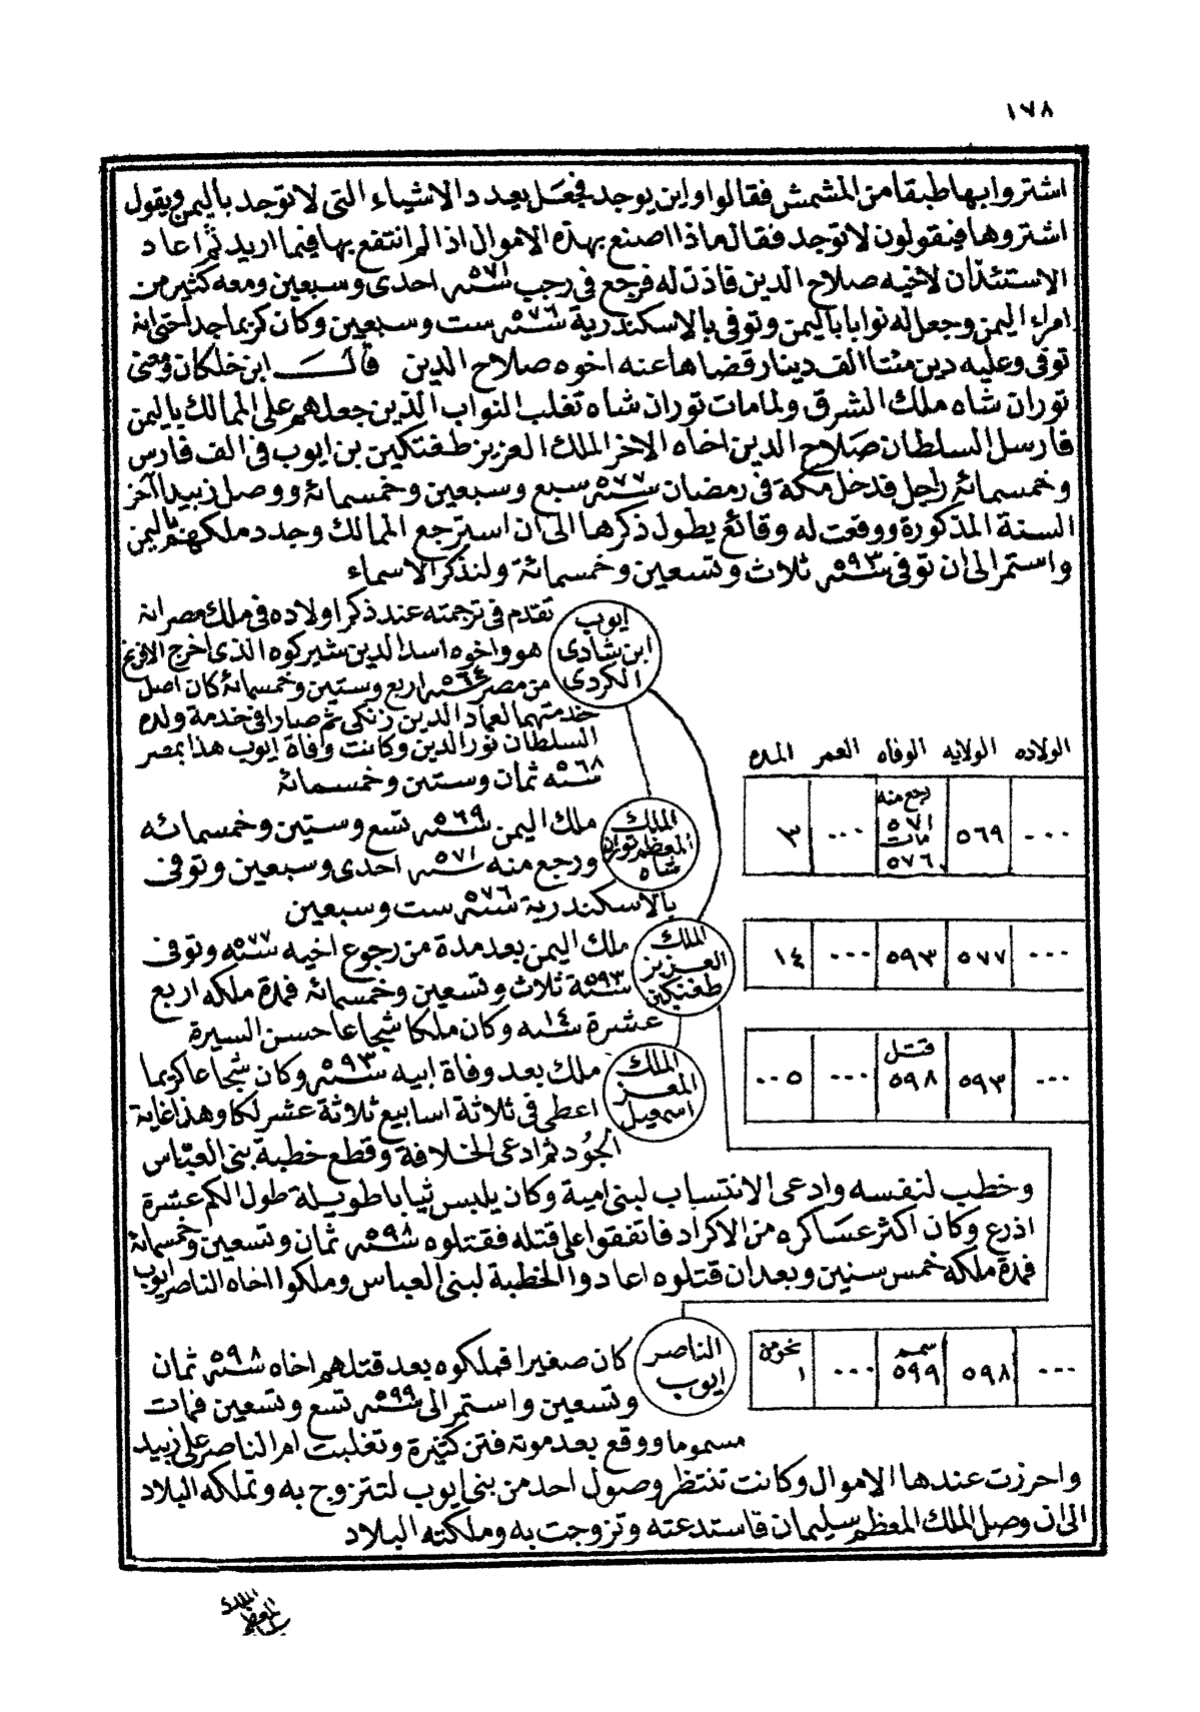 ١٧٨
اشتروا بها طبقا من المشمش فقالوا واين يوجد فجعل يعدد الاشياء التى لا توجد باليمن ويقول
اشتروها فيقولون لا توجد فقال ماذا اصنع بهذه الاموال اذا لم انتفع بها فيما اريد ثم اعاد
الاستئذان لاخيه صلاح الدين فاذن له فرجع فى رجب سنة ٥٧١ احدى وسبعين ومعه كثير من
امراء اليمن وجعل له نوابا باليمن وتوفى بالاسكندرية سنة ٥٧٦ ست وسبعين وكان كريما جدا حتى انه
توفى وعليه دين مئتا الف دينار قضاها عنه اخوه صلاح الدين قال ابن خلكان ومعنى
توران شاه ملك الشرق ولما مات توران شاه تغلب النواب الذين جعلهم على الممالك باليمن
فارسل السلطان صلاح الدين اخاه الاخر الملك العزيز طغتكين بن ايوب فى الف فارس
وخمسمائة راجل فدخل مكة فى رمضان سنة ٥٧٧ سبع وسبعين وخمسمائة ووصل زبيدا آخر
السنة المذكورة ووقعت له وقائع يطول ذكرها الى ان استرجع الممالك وجدد ملكهم باليمن
واستمر الى ان توفى سنة ٥٩٣ ثلاث وتسعين وخمسمائة ولنذكر الاسماء
ايوب
ابن شادى
الكردى
تقدم فى ترجمته عند ذكر اولاده فى ملك مصر انه
هو واخوه اسد الدين شيركوه الذى اخرج الافرنج
من مصر سنة ٥٦٤ اربع وستين وخمسمائة كان اصل
خدمتهما لعماد الدين زنكى ثم صارا فى خدمة ولده
السلطان نور الدين وكانت وفاة ايوب هذا بمصر
سنة ٥٦٨ ثمان وستين وخمسمائة
الولاده الولايه الوفاه العمر المده
٠٠٠ ٥٦٩ رجع منه ٥٧١ مات ٥٧٦ ٠٠٠ ٣
الملك
المعظم توران
شاه
ملك اليمن سنة ٥٦٩ تسع وستين وخمسمائه
ورجع منه سنة ٥٧١ احدى وسبعين وتوفى
بالاسكندرية سنة ٥٧٦ ست وسبعين
٠٠٠ ٥٧٧ ٥٩٣ ٠٠٠ ١٤
الملك
العزيز
طغتكين
ملك اليمن بعد مدة من رجوع اخيه سنة ٥٧٧ وتوفى
سنة ٥٩٣ ثلاث وتسعين وخمسمائة فمدة ملكه اربع
عشرة سنه ١٤ وكان ملكا شجاعا حسن السيرة
٠٠٠ ٥٩٣ قتل ٥٩٨ ٠٠٠ ٠٠٥
الملك
المعز
اسمعيل
ملك بعد وفاة ابيه سنة ٥٩٣ وكان شجاعا كريما
اعطى فى ثلاثة اسابيع ثلاثة عشر لكا وهذا غاية
الجود ثم ادعى الخلافة وقطع خطبة بنى العباس
وخطب لنفسه وادعى الانتساب لبنى امية وكان يلبس ثيابا طويلة طول الكم عشرة
اذرع وكان اكثر عساكره من الاكراد فاتفقوا على قتله فقتلوه سنة ٥٩٨ ثمان وتسعين وخمسمائة
فمدة ملكه خمس سنين وبعد ان قتلوه اعادوا الخطبة لبنى العباس وملكوا اخاه الناصر ايوب
٠٠٠ ٥٩٨ سمم ٥٩٩ ٠٠٠ نحو من ١
الناصر
ايوب
كان صغيرا فملكوه بعد قتلهم اخاه سنة ٥٩٨ ثمان
وتسعين واستمر الى سنة ٥٩٩ تسع وتسعين فمات
مسموما ووقع بعد موته فتن كثيرة وتغلبت ام الناصر على زبيد
واحرزت عندها الاموال وكانت تنتظر وصول احد من بنى ايوب لتتزوج به وتملكه البلاد
الى ان وصل الملك المعظم سليمان فاستدعته وتزوجت به وملكته البلاد
الملك
المعظم